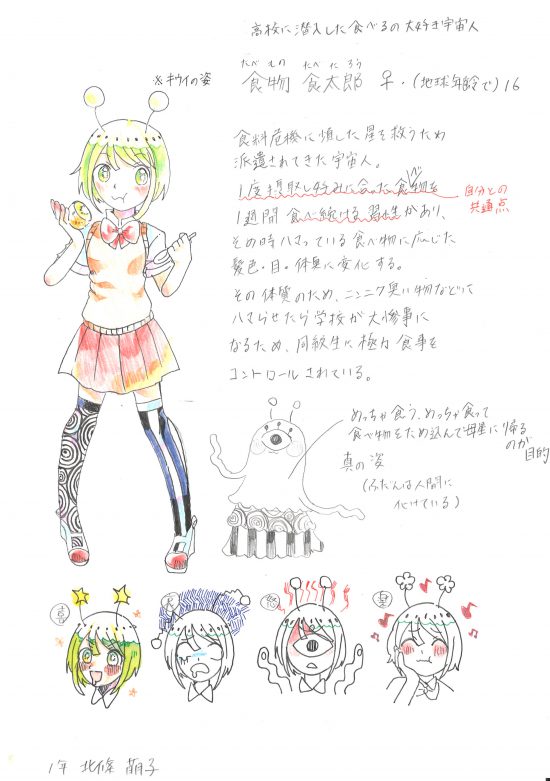 高校に潜入した食べるの大好き宇宙人
※キウイの姿
たべもの たべたろう
食物 食太郎 ♀・(地球年齢で)16
食料危機に瀕した星を救うため
派遣されてきた宇宙人。
1度摂取し好みに合った食べ物を
1週間食べ続ける習性があり、
自分との
共通点
その時ハマっている食べ物に応じた
髪色・目・体臭に変化する。
その体質のため、ニンニク臭い物などって
ハマらせたら学校が大惨事に
なるため、同級生に極力食事を
コントロールされている。
めっちゃ食う、めっちゃ食って
食べ物をため込んで母星に帰る
のが
目的
真の姿
(ふだんは人間に
化けている)
喜
哀
怒
楽
1年 北條 萌子